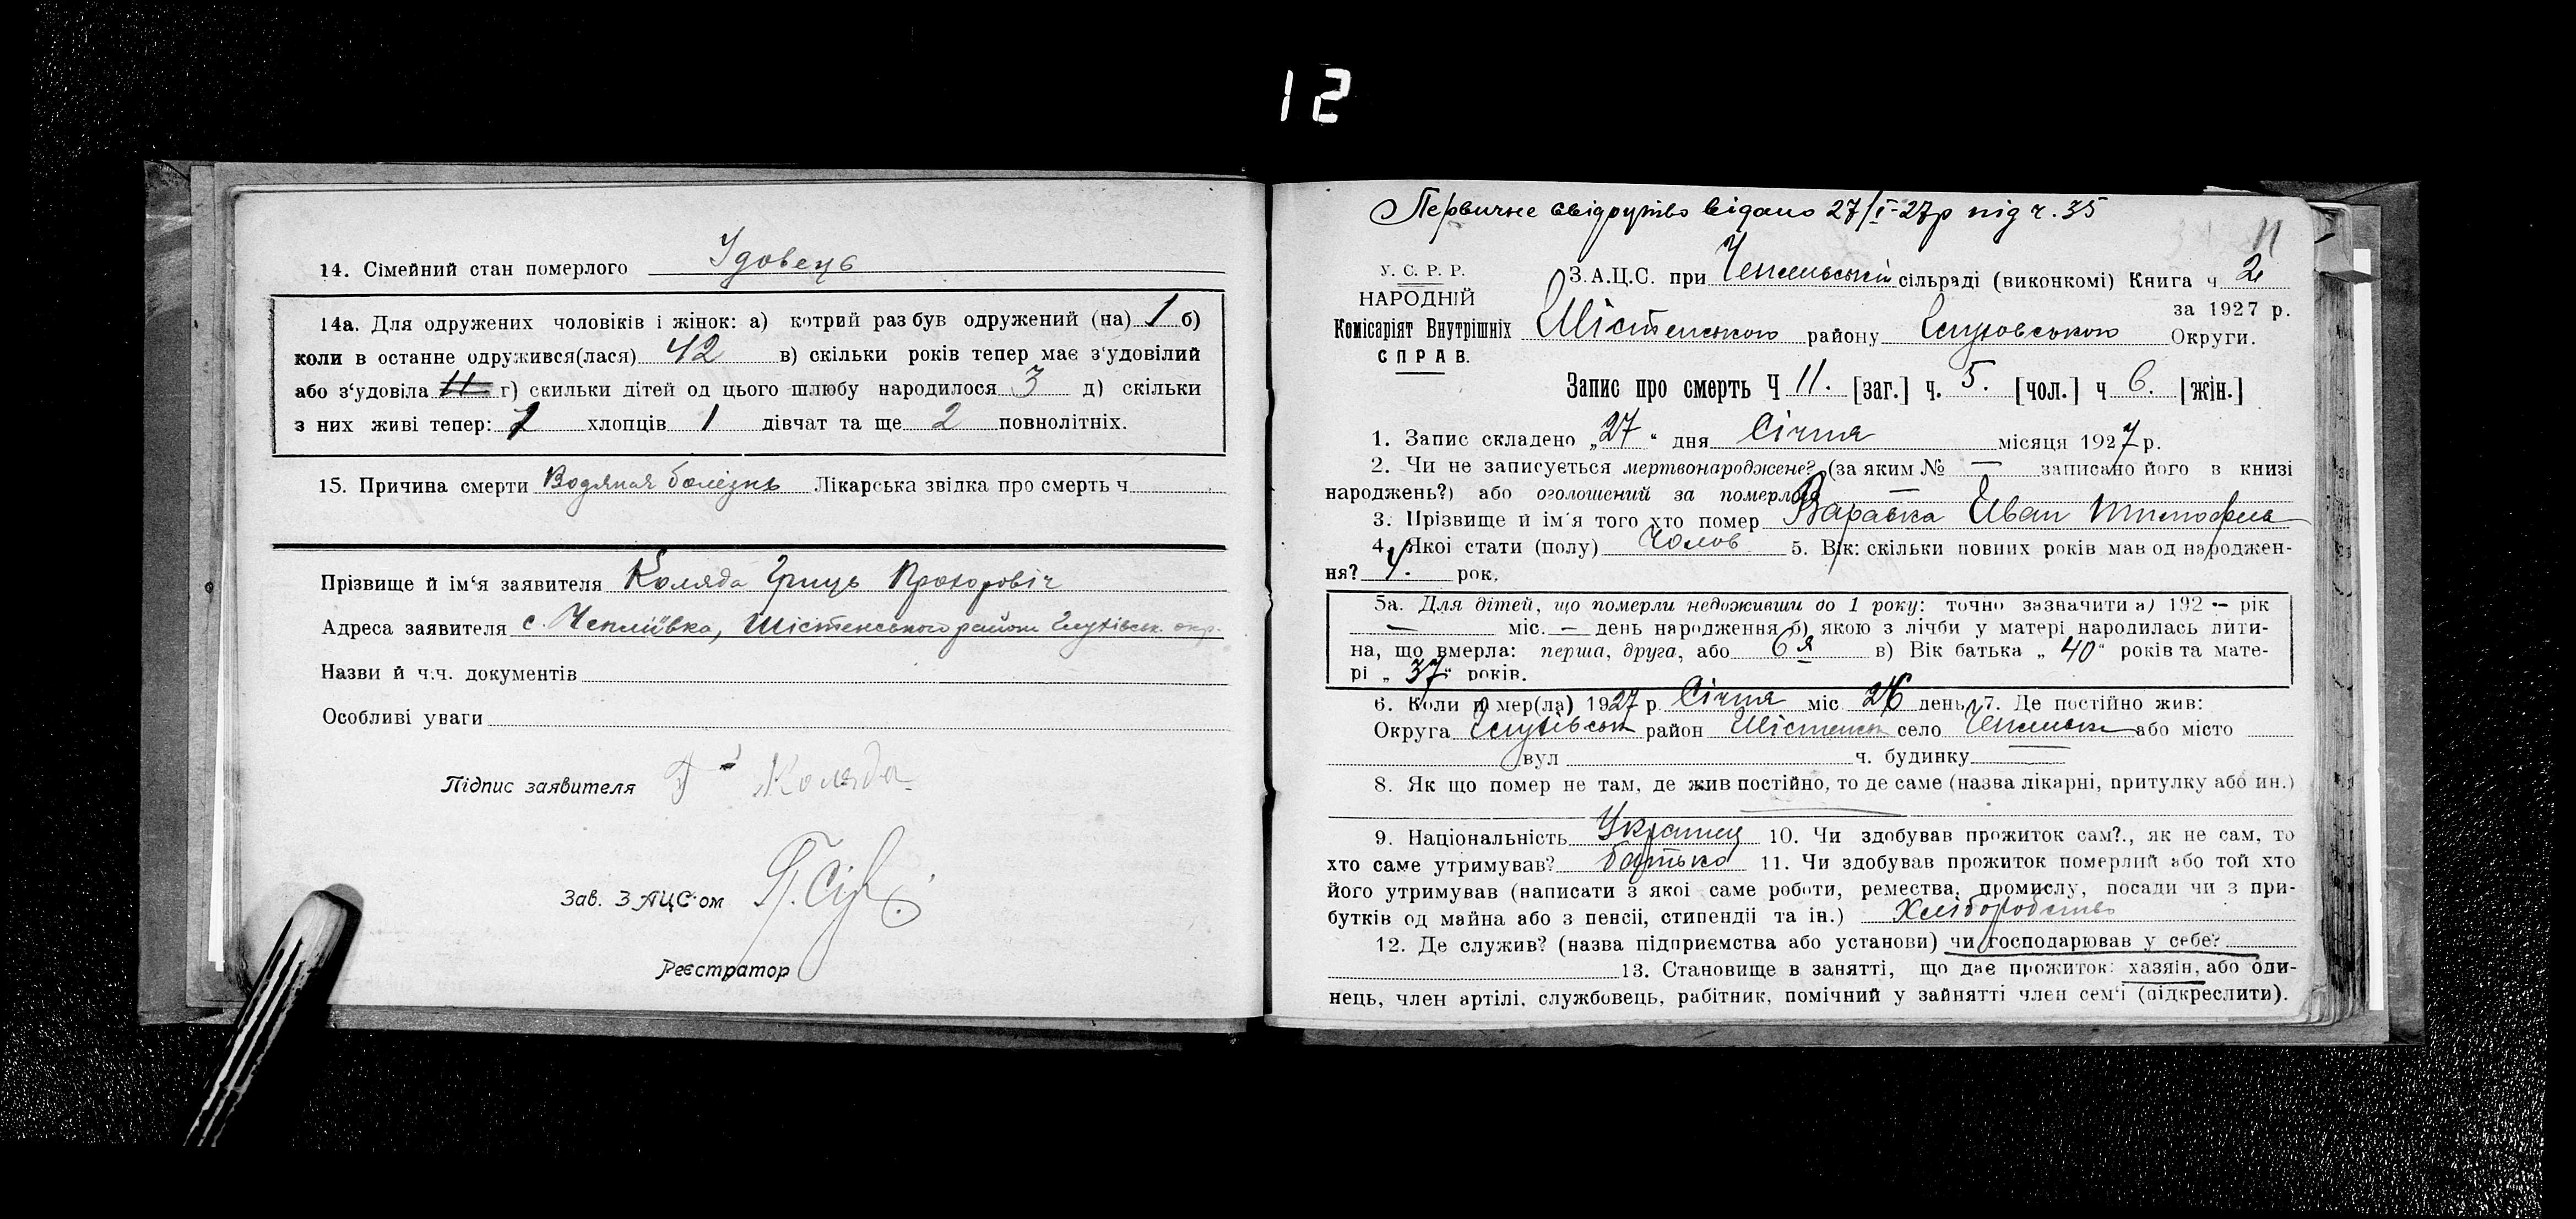 12
14. Сімейний стан померлого Удовець
14а. Для одружених чоловіків і жінок: а) котрий раз був одружений (на) 1 б)
коли в останне одружився(лася) 42 в) скільки років тепер має з‘удовілий
або з‘удовіла г) скильки дітей од цього шлюбу народилося 3 д) скільки
з них живі тепер: хлопців 1 дівчат та ще 2 повнолітніх.
15. Причина смерти Водяная болезнь Лікарська звідка про смерть ч
Прізвище й ім‘я заявителя Коляда Гриць Прохоровіч
Адреса заявителя с. Чепліївка, Шістенського району Глухівськ. окр.
Назви й ч.ч. документів
Особливі уваги
Підпис заявителя Г Коляда
Зав. ЗАЦС‘ом
Реєстратор
Первичне свідоцтво видано 27/I-27р під ч. 35
11
У. С. Р. Р.
НАРОДНІЙ
Комісаріят Внутрішніх
СПРАВ.
З.А.Ц.С. при сільраді (виконкомі) Книга ч 2
за 1927 р.
Шістенського району Глуховського Округи.
Запис про смерть Ч 11. [заг.] ч. 5. [чол.] ч 6. [жін.]
1. Запис складено „27“ дня Січня місяця 1927 р.
2. Чи не записується мертвонароджене? (за яким № — записано його в книзі
народжень?) або оголошений за померлого —
3. Прізвище й ім‘я того хто помер Варавка Иван Тимофеев
4. Якоі стати (полу) Чолов 5. Вік: скільки повних років мав од народжен-
ня? рок.
5а. Для дітей, що померли недоживши до 1 року: точно зазначити а) 192 — рік
— міс. — день народження б) якою з лічби у матері народилась дити-
на, що вмерла: перша, друга, або 6я в) Вік батька „40“ років та мате-
рі „37“ років.
6. Коли помер(ла) 1927 р. Січня міс день 7. Де постійно жив:
Округа Глухівськ район Шістенськ село або місто
вул ч. будинку
8. Як що помер не там, де жив постійно, то де саме (назва лікарні, притулку або ин.)
9. Національність Украинец 10. Чи здобував прожиток сам?., як не сам, то
хто саме утримував? батько 11. Чи здобував прожиток померлий або той хто
його утримував (написати з якоі саме роботи, ремества, промислу, посади чи з при-
бутків од майна або з пенсіі, стипендіі та ін.) Хліборобство
12. Де служив? (назва підприемства або установи) чи господарював у себе?
13. Становище в занятті, що дає прожиток: хазяін, або оди-
нець, член артілі, службовець, рабітник, помічний у зайнятті член сем‘і (підкреслити).